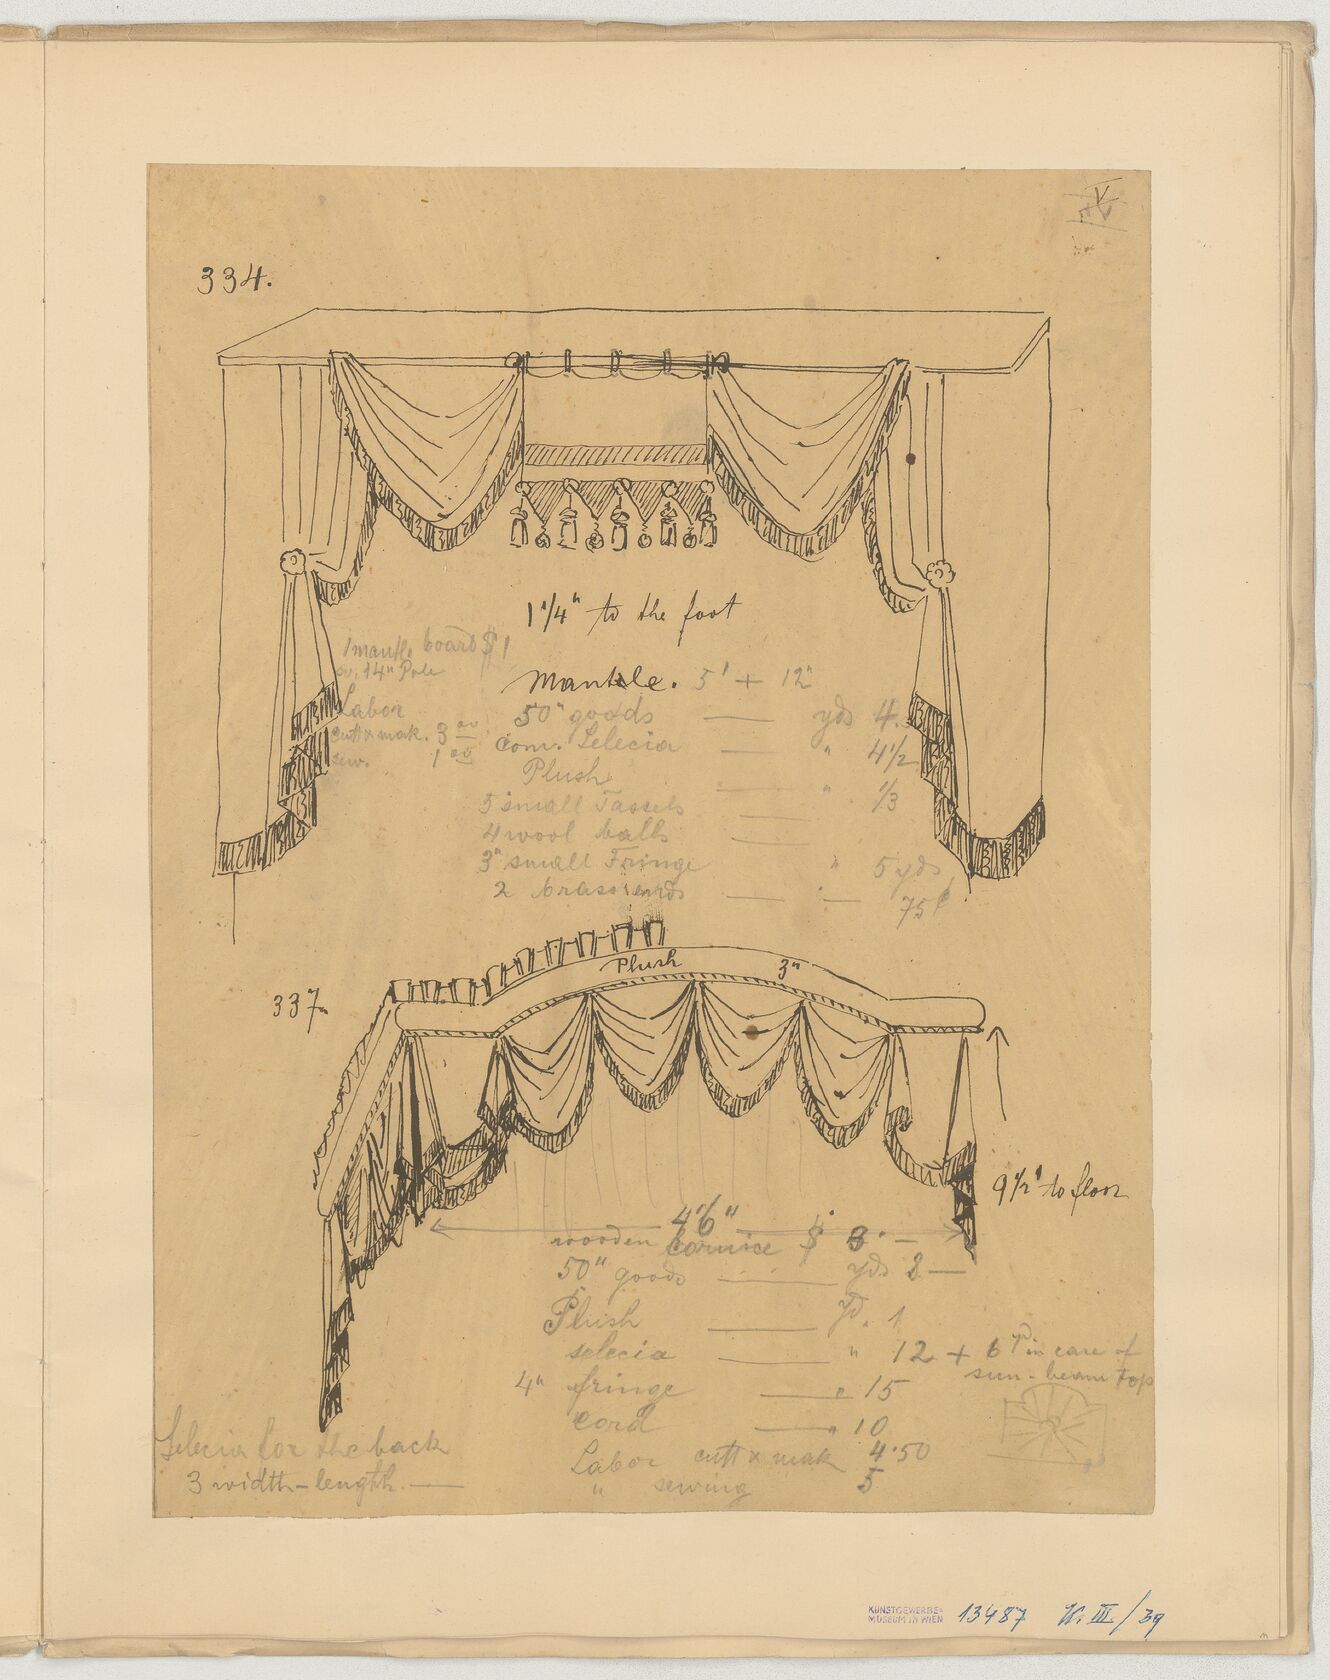 V
334.
1 1/4" to the foot
1 mantle board $ 1
14" Pole
Labor
cutt & mak. 3
sew. 1
Mantele. 5' + 12"
50" goods — yds 4.
com. Selecia — " 4 1/2
Plush — " 1/3
5 small Tassels —
4 wool balls —
3" small Fringe " 5 yds
2 brass ends — " — 75¢
337.
Plush 3"
9 1/2' to floor
4'6"
wooden Cornice $ 3 · —
50" goods — yds 8 —
Plush — yd. 1
selecia — " 12 + 6 yd in care of
sun-beam top
4" fringe — " 15
cord — " 10
Labor cutt & mak 4.50
" sewing 5
Selecia for the back
3 width-length. —
KUNSTGEWERBE-
MUSEUM IN WIEN
13487 K. III / 39